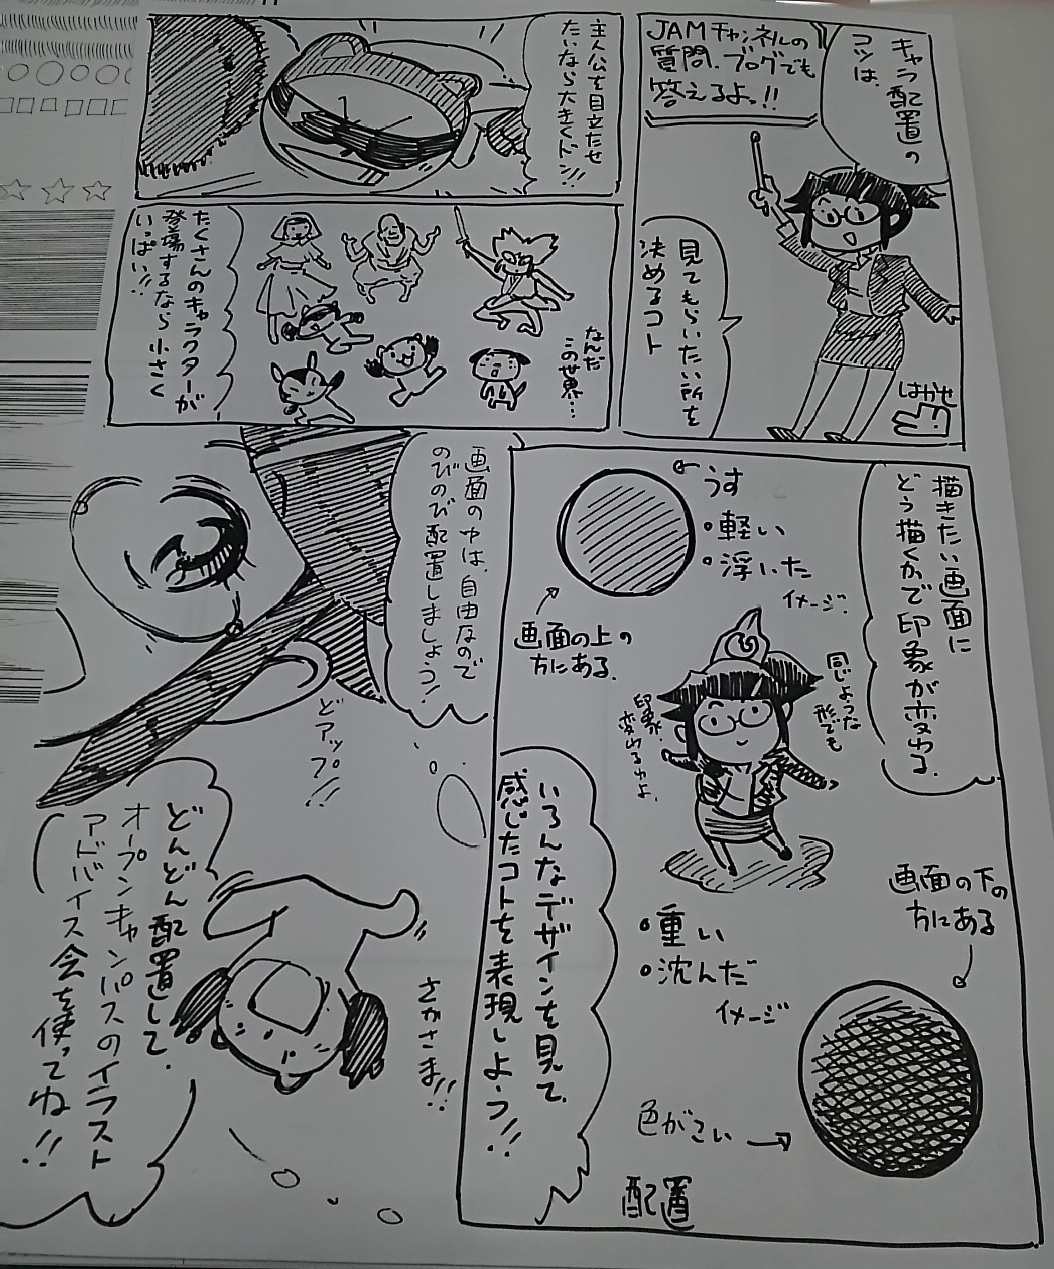 JAMチャンネルの
質問、ブログでも
答えるよっ!!
キャラ配置の
コツは、
見てもらいたい所を
決めるコト
はかせ
主人公を目立たせ
たいなら大きくドン!!
なんだ
この世界…
たくさんのキャラクターが
登場するなら小さく
いっぱい!!
描きたい画面に
どう描くかで印象が変わる。
うす
・軽い
・浮いた
イメージ.
画面の上の
方にある.
同じような
形でも
印象、
変わるわよ.
画面の下の
方にある
・重い
・沈んだ
イメージ
色がこい
配置
いろんなデザインを見て、
感じたコトを表現しよう!!
画面の中は、自由なので
のびのび配置しましょう!
どアップ!!
さかさま!!
どんどん配置して、
オープンキャンパスのイラスト
アドバイス会を使ってね!!